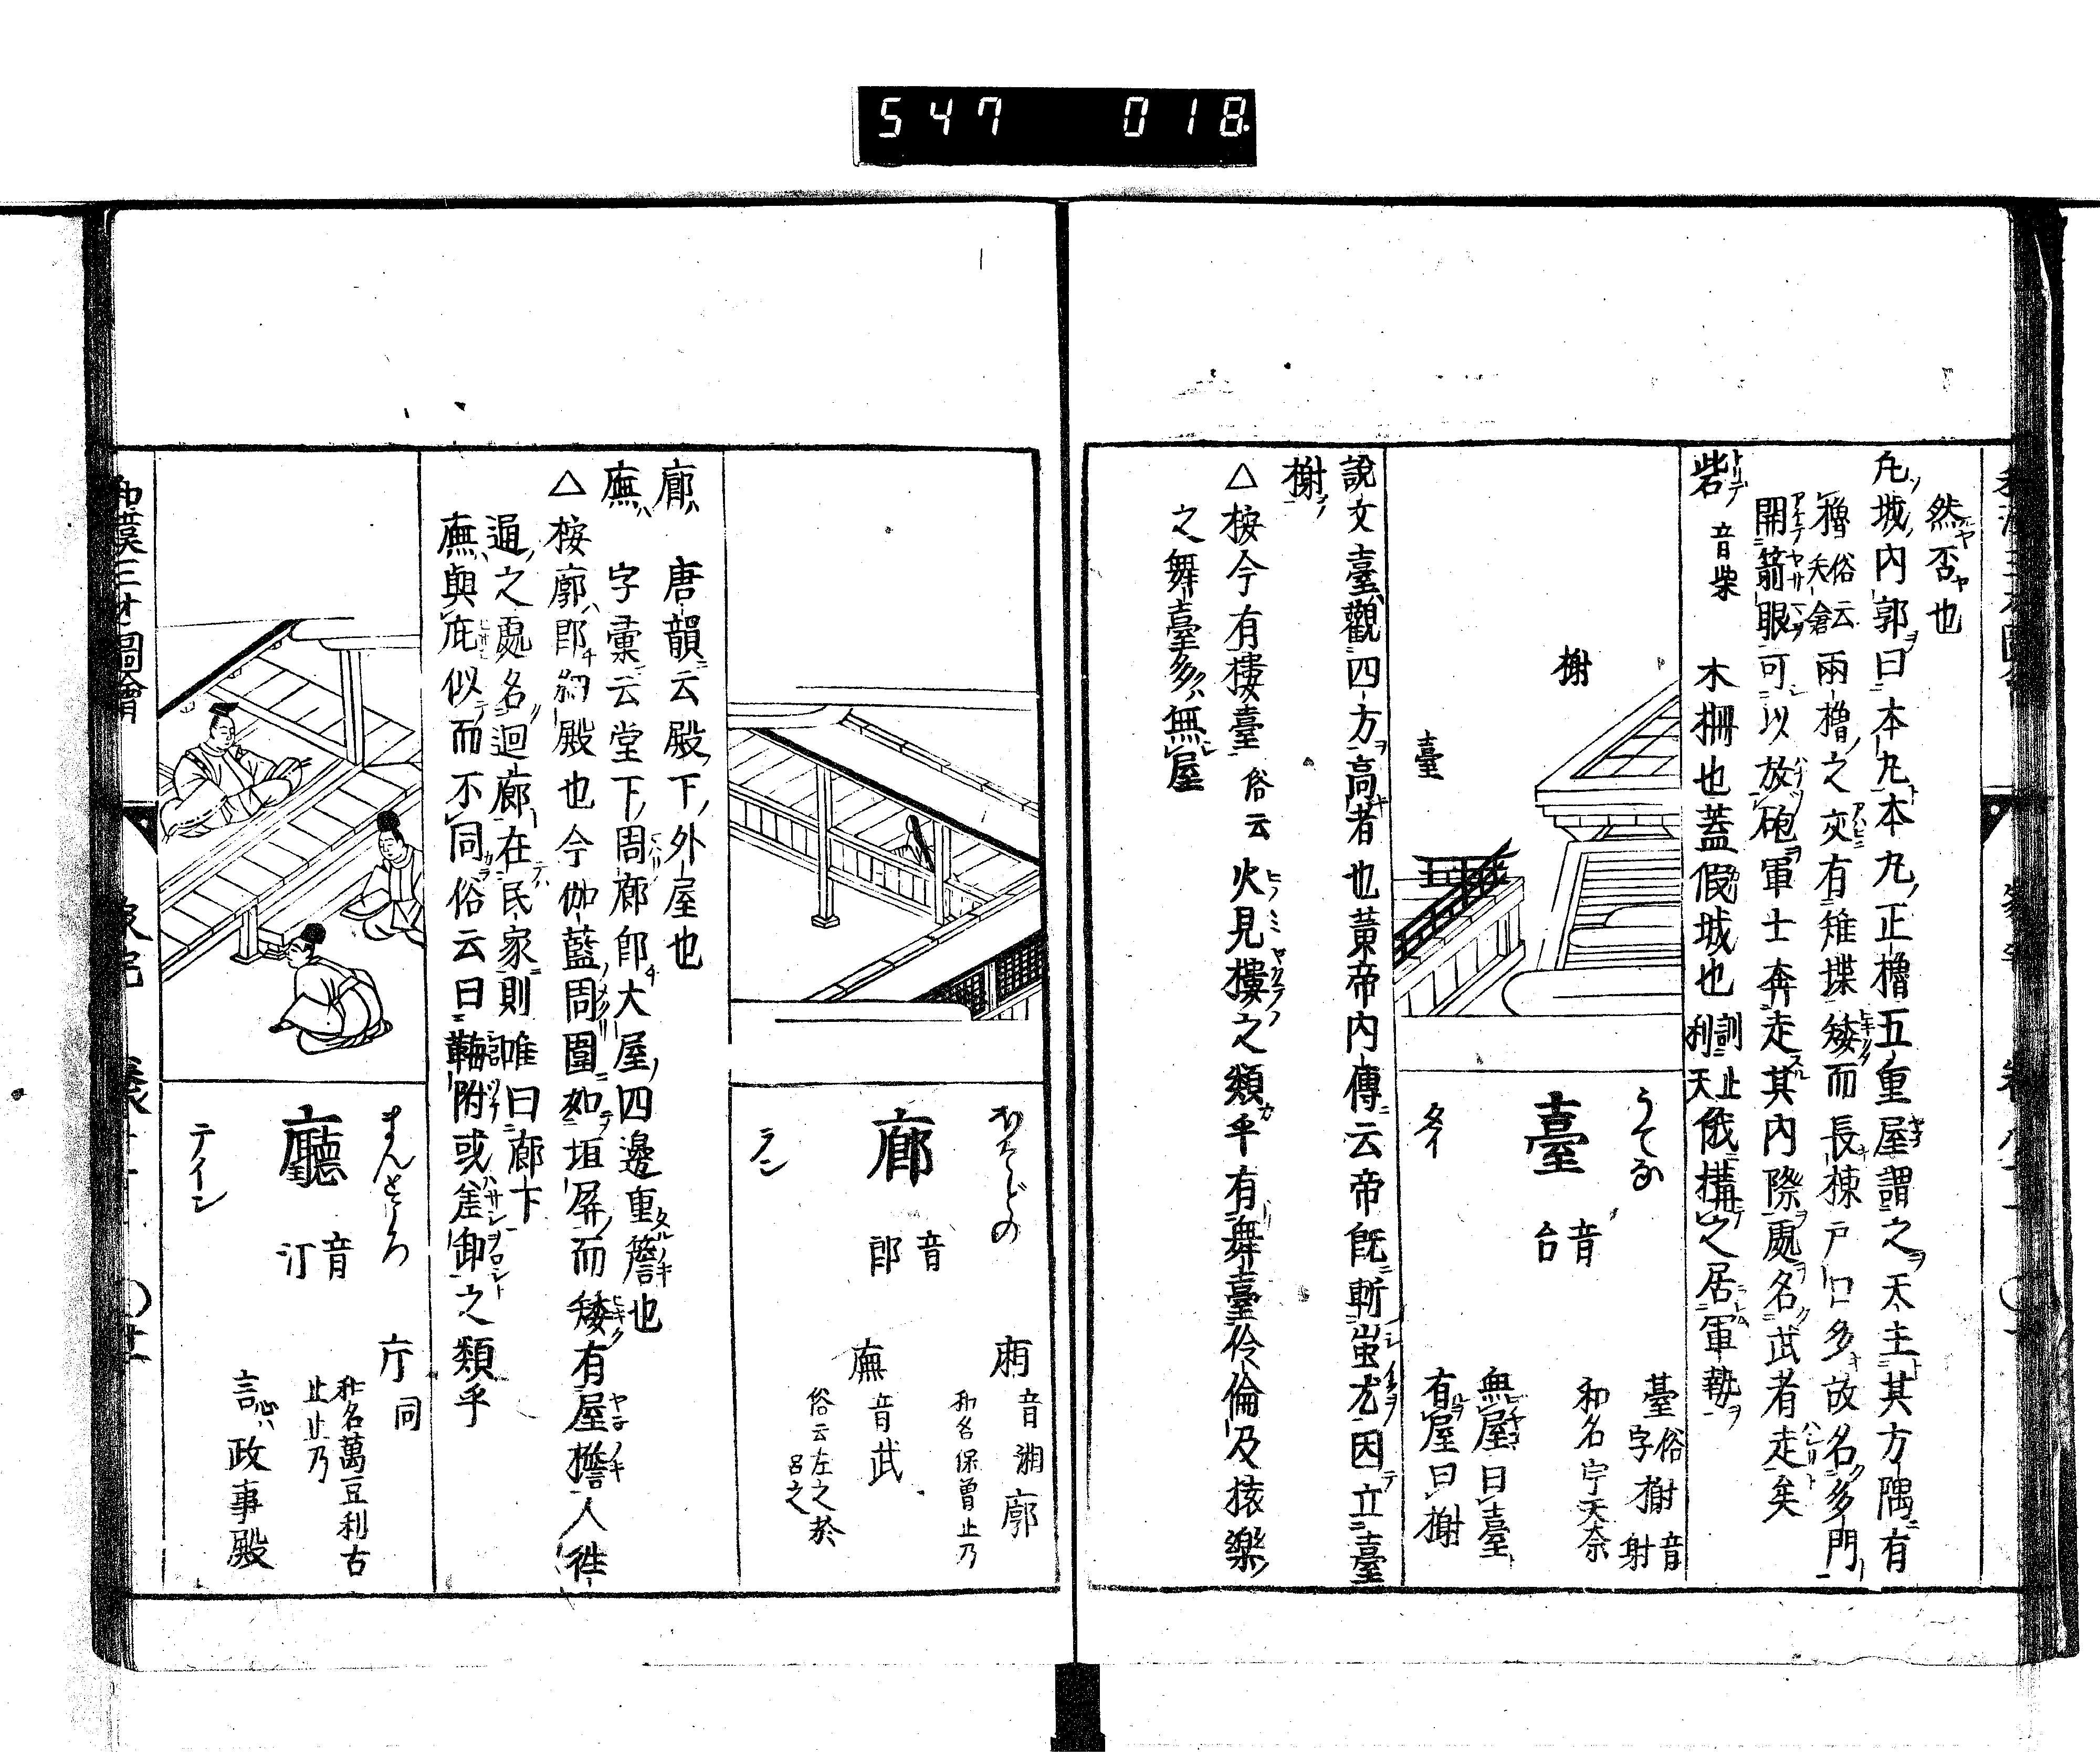 547 018
然否也
凢城内郭曰本丸本丸正櫓五重屋謂之天主其方隅有
櫓俗云矢倉兩櫓之交有雉堞矮而長棟戸口多故名多門
開箭眼可以放砲軍士奔走其内際處名武者走矣
砦 音柴 木柵也蓋假城也訓止利天俄構之居軍勢
榭
臺
うてな
臺 音台
タイ
䑓俗字 榭音射
和名宇天奈
無屋曰臺
有屋曰榭
說文臺觀四方高者也黄帝内傳云帝既斬蚩尤因立臺
榭
△按今有樓臺俗云火見樓之類乎有舞臺伶倫及猿樂
之舞臺多無屋
ほそどの
廊 音郎
ラン
廂音湘 廓
和名保曾止乃
廡音武
俗云左之於呂之
廊 唐韻云殿下外屋也
廡 字彙云堂下周廊即大屋四邊重簷也
△按廓即細殿也今伽藍周圍如垣屏而矮有屋檐人徃
通之處名迴廊在民家則唯曰廊下
廡與庇似而不同俗云日鞠附或差卸之類乎
まんところ
廳 音汀
テイン
庁同
和名萬豆利古止止乃
言心政事殿
和漢三才圖會